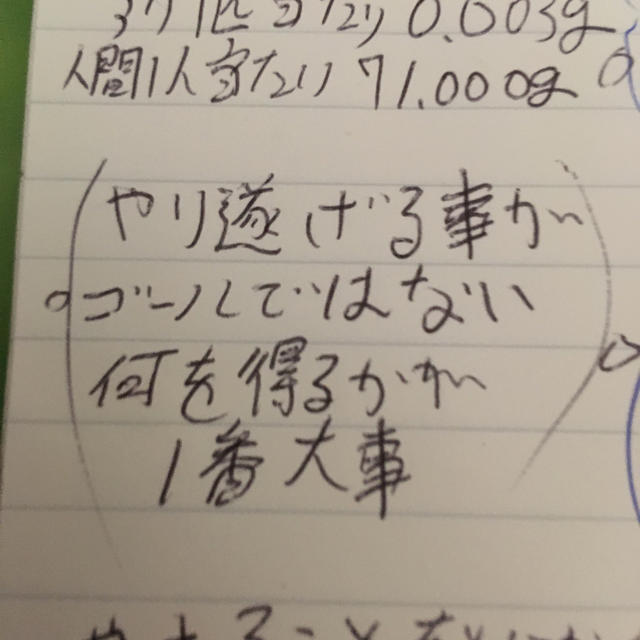 1匹当たり 0.003g
人間1人当たり 71.000g
やり遂げる事が
ゴールではない
何を得るかが
1番大事